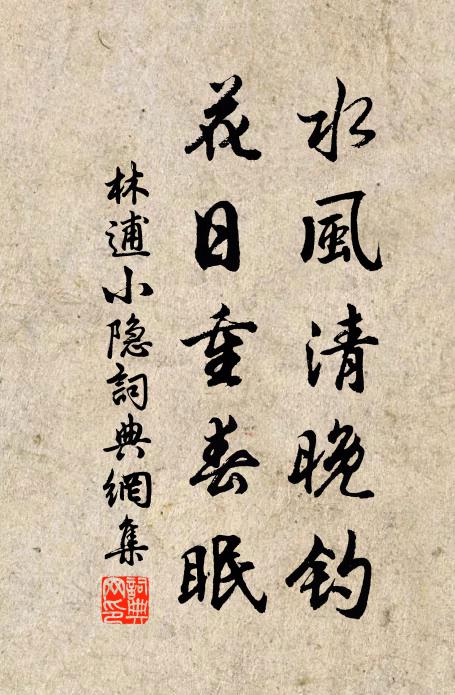 水風清晚釣
花日重春眠
林逋小隐詞典網集
詞典网印